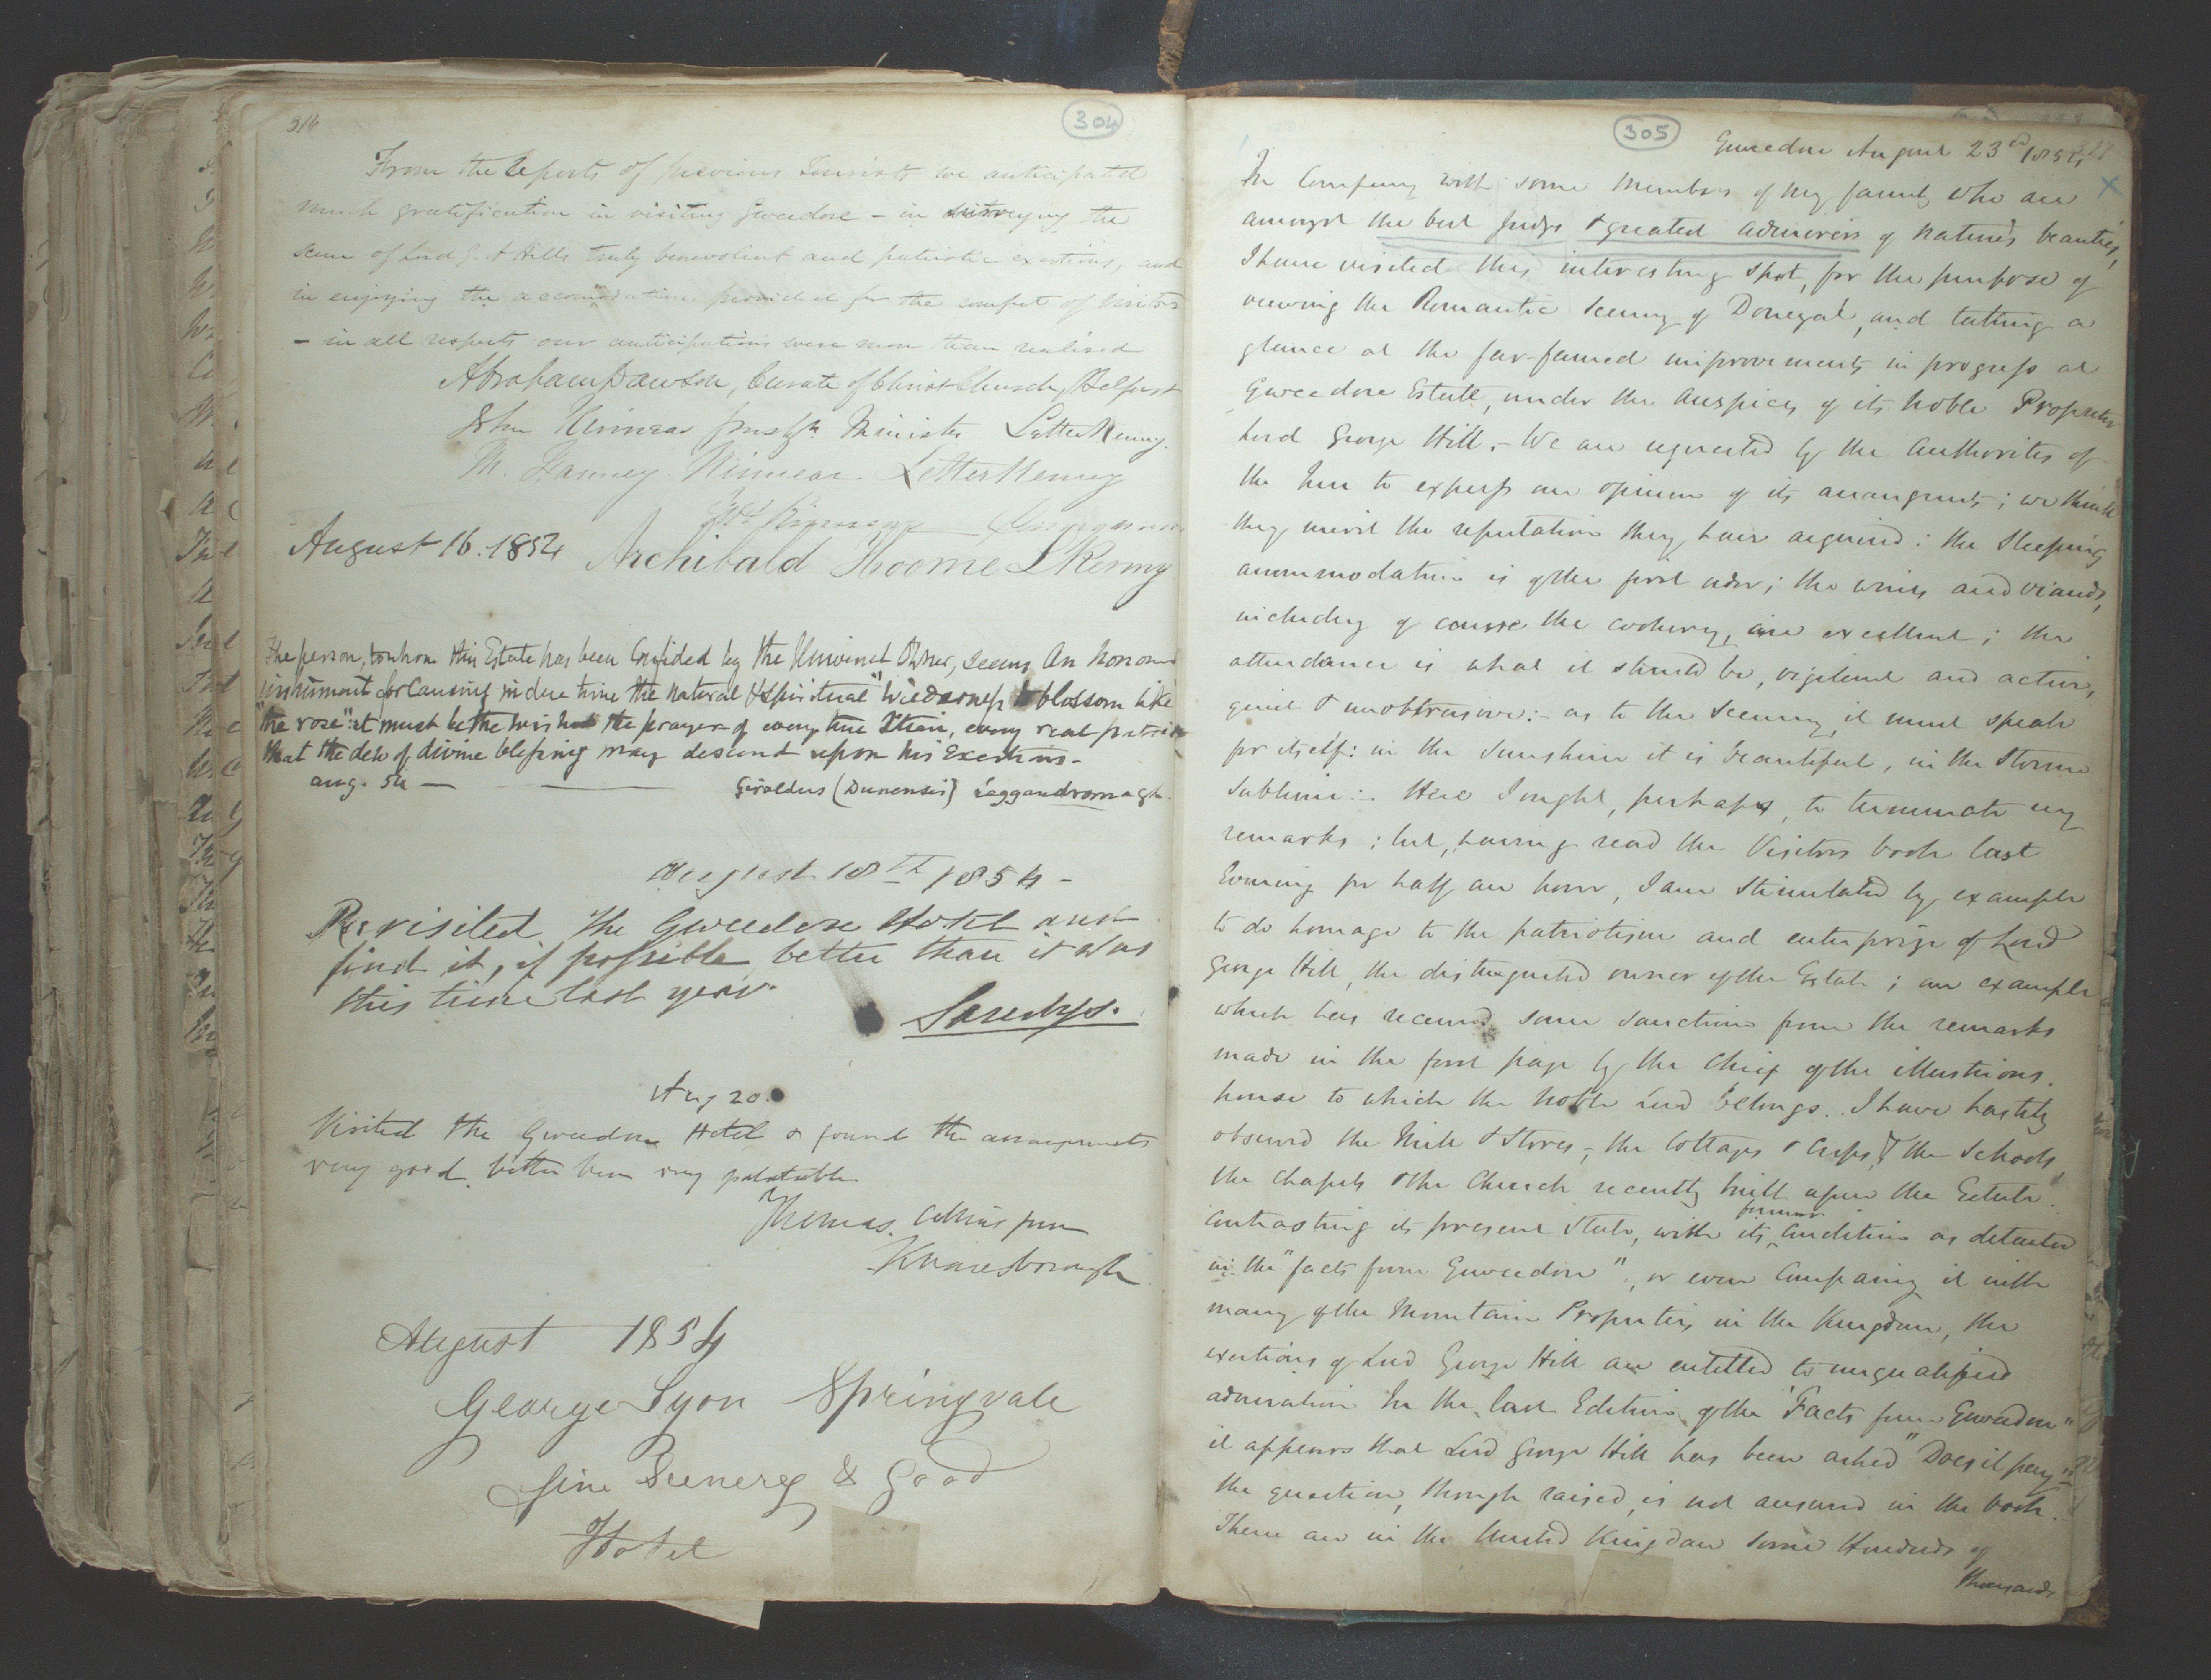 316
304
From the Reports of previous Tourists we anticipated
much gratification in visiting Gweedore - in surveying the
scene of Lord G. A Hills truly benevolent and patriotic exertions, and
in enjoying the accomodations provided for the comfort of visitors
- in all respects our anticipations were more than realised
Abraham Dawson, Curate of Christ Church, Belfast
John Kinnear Presbn Minister Letterkenny.
M. Fanney Kinnear Letterkenny
August 16. 1854 Archibald Thoorne LKenny
The person, to whom this Estate has been Confided by the Universal Owner, seems, An honored
instrument for Causing in due time the natural & spiritual "Wilderness to blossom like
"the rose": it must be the wish & the prayer of every true Xtian, every real patriot
that the dew of divine blessing may descend upon his Exertions -
aug. 54 — Giraldus (Dunensis)
August 18th 1854 -
Revisited the Gweedore Hotel and
find it, if possible better than it was
this time last year.
Sandys.
Aug 20.
Visited the Gweedore Hotel & found the arrangements
very good. bitter beer very palatable
Thomas Collins jun
Knaresborough
August 1854
George Lyon Springvale
fine Scenery & Good
Hotel
305
Gweedore August 23rd 1854
In Company with some Members of my family who are
amongst the best judges & greatest admirers of Nature's beauties,
I have visited this interesting spot, for the purpose of
viewing the Romantic Scenery of Donegal, and taking a
glance at the far-famed improvements in progress at
Gweedore Estate, under the Auspices of its Noble Proprietor
Lord George Hill. - We are requested by the Authorities of
the Inn to express our opinion of its arrangments; we think
they merit the reputation they have acquired: the Sleeping
accommodation is of the first order; the wines and viands,
including of course the cookery, are excellent; the
attendance is what it should be, vigilent and active,
quiet & unobtrusive: - as to the Scenery, it must speak
for itself: in the Sunshine it is beautiful, in the Storm
Sublime: - Here I ought, perhaps, to terminate my
remarks; but, having read the Visitors book last
Evening for half an hour, I am stimulated by example
to do homage to the patriotism and enterprize of Lord
George Hill, the distinguished owner of the Estate; an example
which has received some sanction from the remarks
made in the first page by the Chief of the illustrious
house to which the Noble Lord belongs. I have hastily
observed the Mill & Stores, - the Cottages & Crops, & the Schools
the Chapels & the Church recently built upon the Estate.
Contrasting its present State, with its former Condition as detailed
in the "facts from Gweedore", or even Comparing it with
many of the Mountain Properties in the Kingdom, the
exertions of Lord George Hill are entitled to unqualified
admiration In the last Edition of the "Facts from Gweedore"
it appears that Lord George Hill has been asked "Does it pay"
the question, though raised, is not answered in the book.
There are in the United Kingdom some Hundreds of
thousands